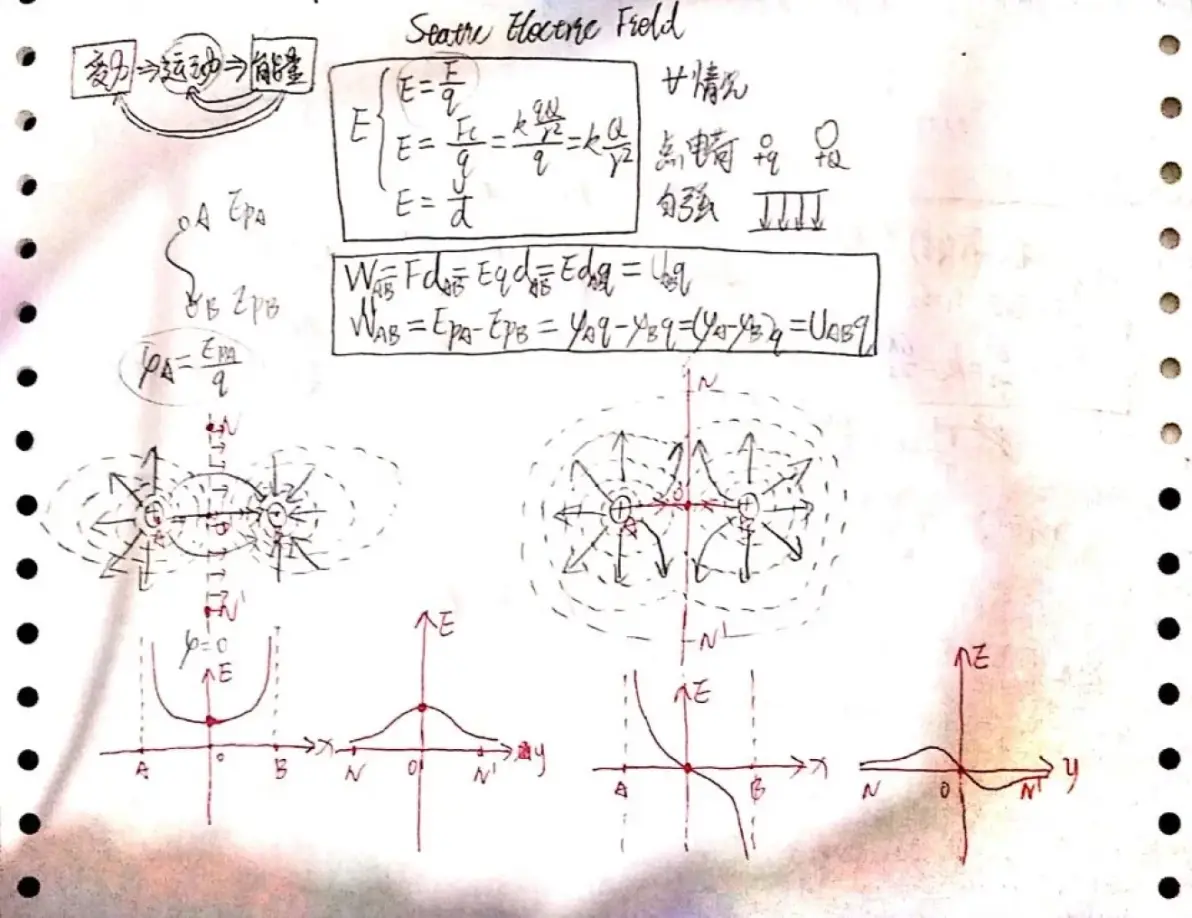 Static Electric Field
受力⇒运动⇒能量
E { E=F/q
E=Fc/q=k(qQ/r²)/q=kQ/r²
E=U/d
廿情况
点电荷 +q +Q
匀强
A EpA
B EpB
φA=EpA/q
WAB=FdAB=EqdAB=Edq=UABq
WAB=EpA-EpB=φAq-φBq=(φA-φB)q=UABq
N
N
+ -
A 0
+ +
A 0 B
N'
N'
φ=0
E
E
E
E
A 0 B x
N 0 N' y
A B x
N 0 N' y